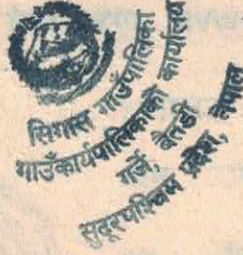 सिगास गाउँपालिका
गाउँकार्यपालिकाको कार्यालय
गर्जे, बैतडी
सुदूरपश्चिम प्रदेश, नेपाल